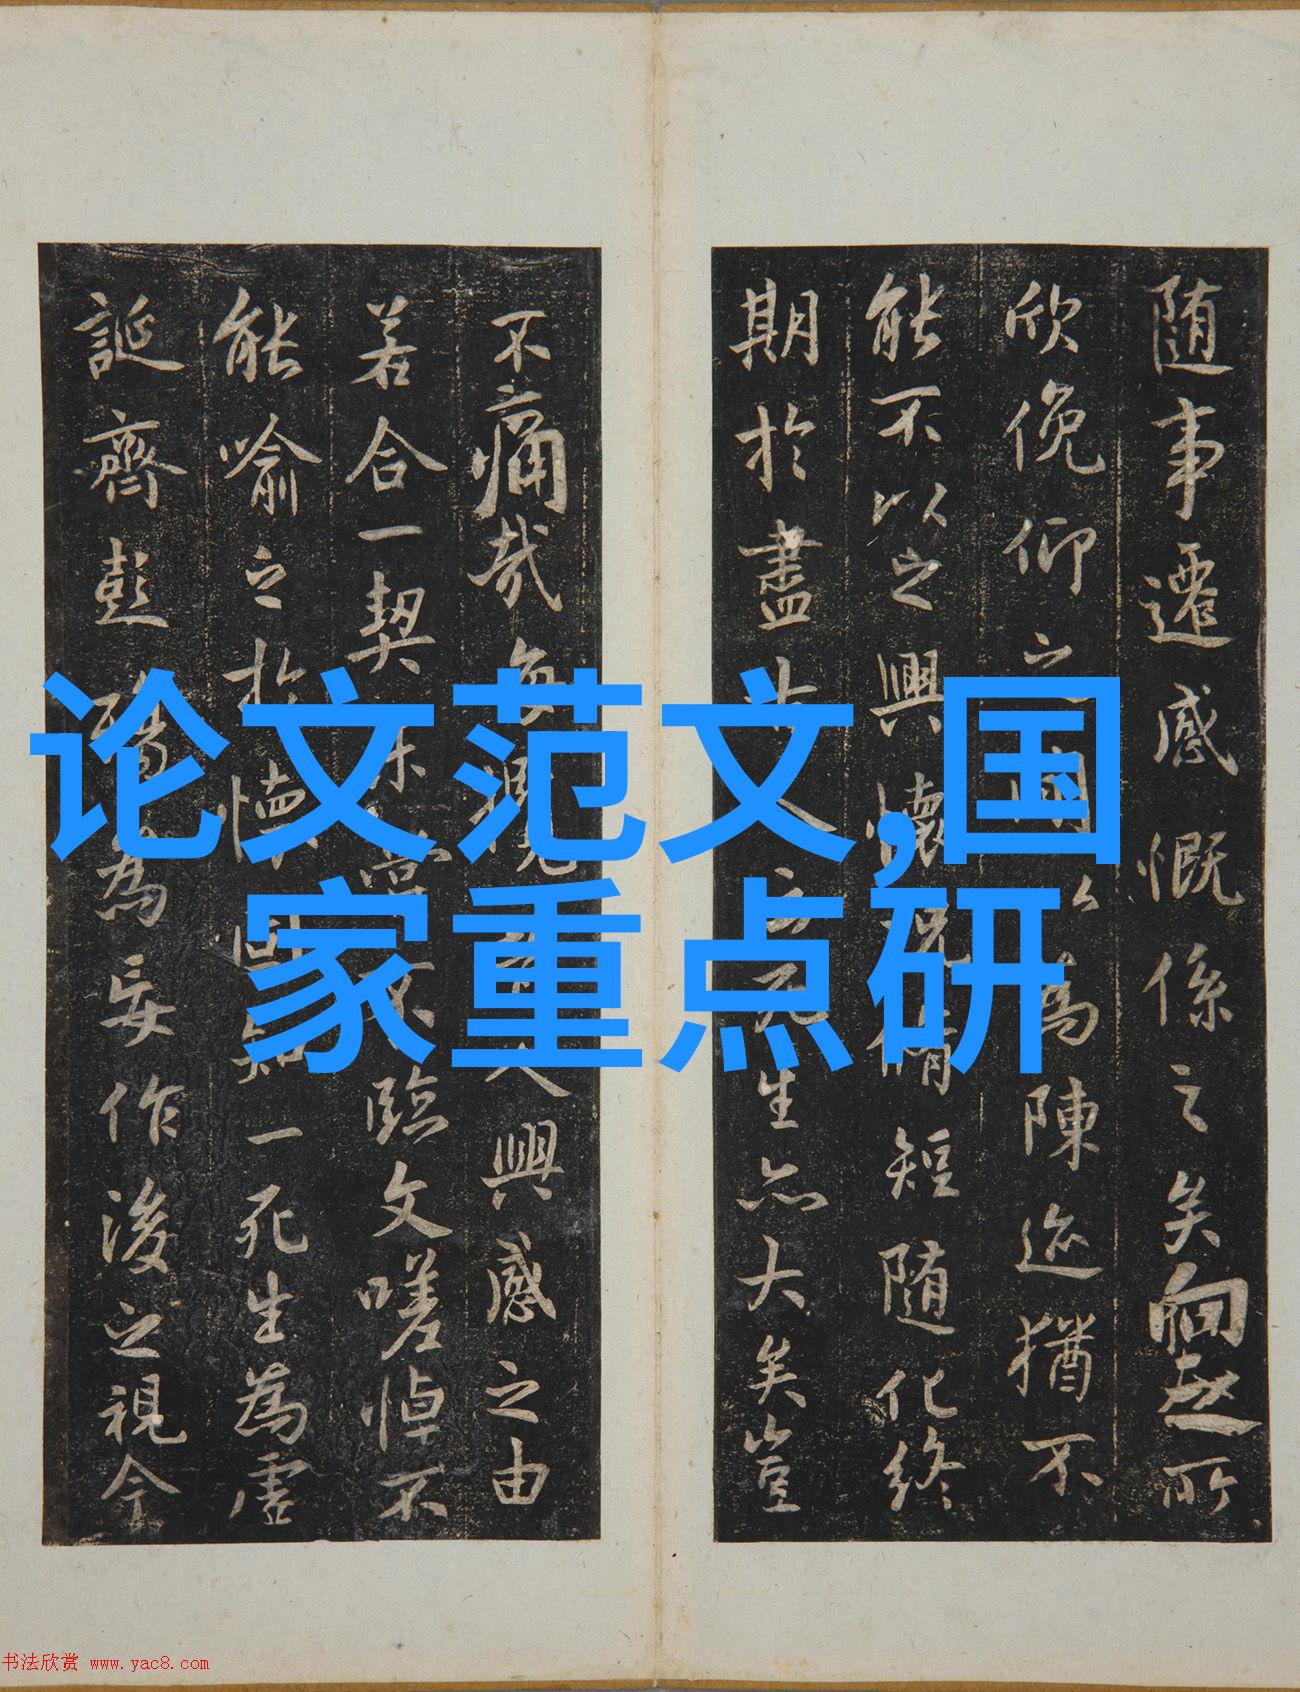 论文范文,国
家重点研
随事遷感慨係之矣向之所
欣俛仰之間以為陳迹猶不
能不以之興懷況脩短随化終
期於盡古人云死生亦大矣豈
不痛哉每攬昔人興感之由
若合一契未嘗不臨文嗟悼不
能喻之於懷固知一死生為虛
誕齊彭殤為妄作後之視今
书法欣赏 www.yac8.com